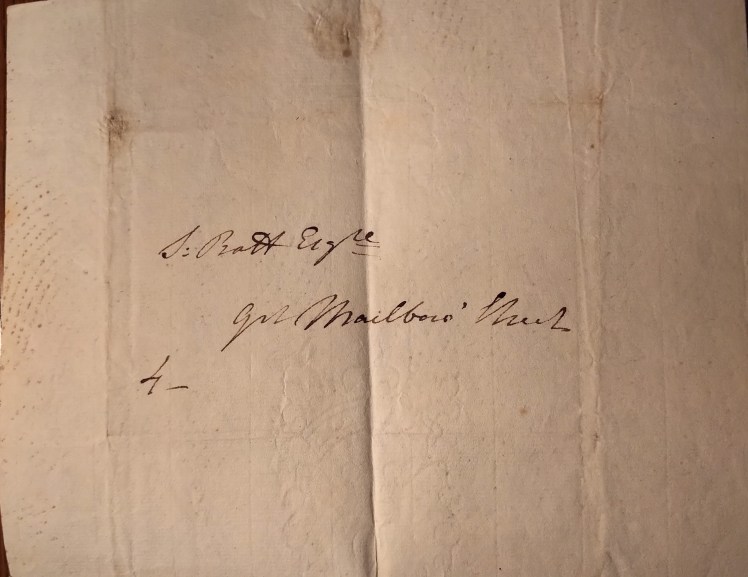 S: Batt Esqre
Grt Mailboro' Street
4–